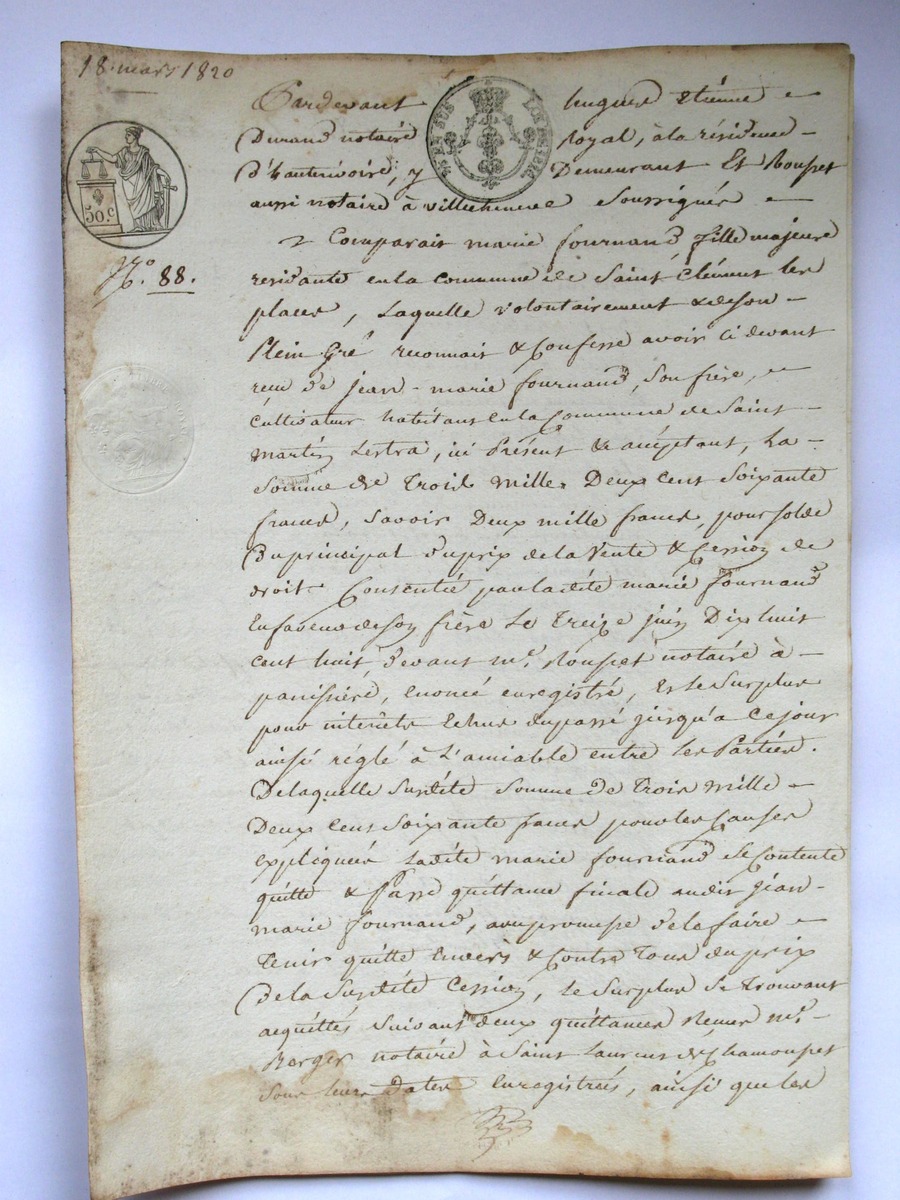 18 mars 1820
Pardevant hugues etiénne
Durand notaire royal, à la résidence
D'hauterivoire, y Demeurant Et Roupet
aussi notaire à villecheneve Soussignés
50.c
Comparait marie fournand fille majeure
N.o 88.
residante en la commune de Saint Clément les
places, Laquelle volontairement & de son
Plein Gré reconnait & Confesse avoir ci devant
recu de jean-marie fournand, son frère,
Cultivateur habitant en la Commune de Saint
martin Lestra, ici Présent & acceptant, La
Somme de Trois mille Deux cent Soixante
francs, Savoir Deux mille francs pour solde
Du principal du prix de la Vente & Cession de
droit Consentié par ladité marie fournand
En faveur de son frère Le Treize juin Dix huit
cent huit devant m.e Roupet notaire à
panissiéré, énoncé enregistré, Et le Surplus
pour intérêts Echus du passé jusqu'à ce jour
ainsi réglé à L'amiable entre Les Partiés.
De laquelle Susdité Somme de Trois mille
Deux Cent Soixante francs pour les Causes
Expliquées Ladité marie fournand Se Contente
quitte & Passe quittance finale audit jean
marie fournand, avec promesse de le faire
Tenir quitte Envèrs & Contre Tous du prix
De la Susdité Cession, Le Surplus Se Trouvant
acquitté Suivant deux quittances Recues m.e
Berger notaire à Saint Laurent de Chamousset
Sous leurs Dates Enregistrées, ainsi que les